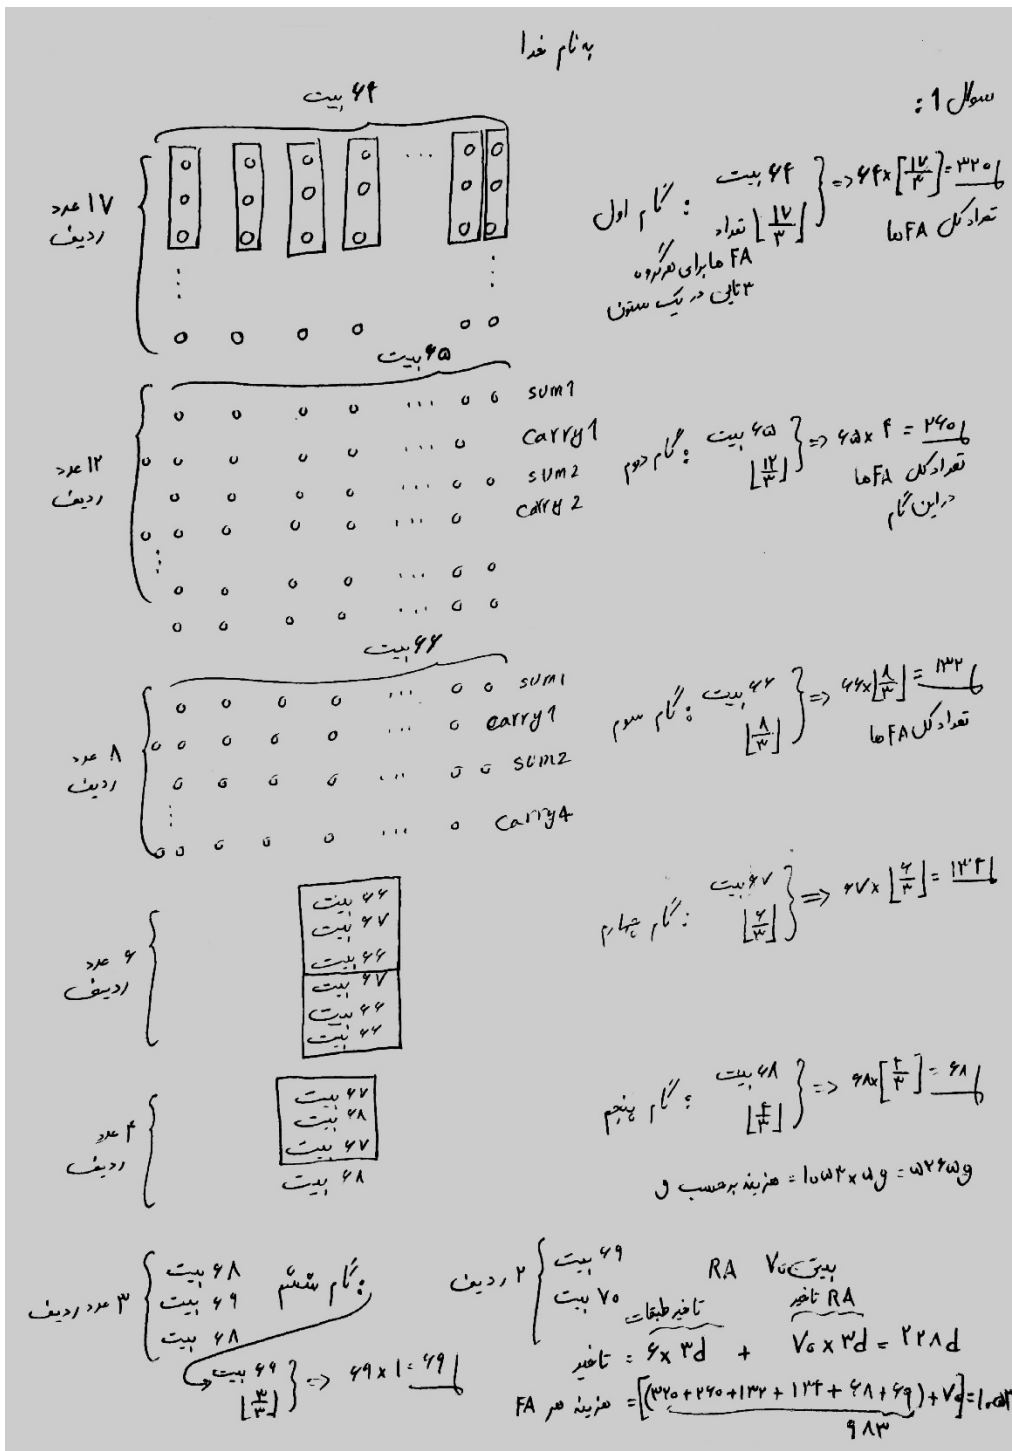 به نام خدا
سوال 1 :
۶۴ بیت
۱۷ عدد
ردیف
گام اول : ۶۴ بیت
⌊۱۷/۳⌋ تعداد
FA ها برای هر گروه
۳ تایی در یک ستون
=> ۶۴×[۱۷/۳] = ۳۲۰
تعداد کل FA ها
۶۵ بیت
۱۲ عدد
ردیف
sum1
Carry1
sum2
Carry2
گام دوم : ۶۵ بیت
⌊۱۲/۳⌋
=> ۶۵×۴ = ۲۶۰
تعداد کل FA ها
در این گام
۶۶ بیت
۸ عدد
ردیف
sum1
carry1
sum2
Carry4
گام سوم : ۶۶ بیت
⌊۸/۳⌋
=> ۶۶×⌊۸/۳⌋ = ۱۳۲
تعداد کل FA ها
۶ عدد
ردیف
۶۶ بیت
۶۷ بیت
۶۶ بیت
۶۷ بیت
۶۶ بیت
۶۶ بیت
گام چهارم : ۶۷ بیت
⌊۶/۳⌋
=> ۶۷×⌊۶/۳⌋ = ۱۳۴
۴ عدد
ردیف
۶۷ بیت
۶۸ بیت
۶۷ بیت
۶۸ بیت
گام پنجم : ۶۸ بیت
⌊۴/۳⌋
=> ۶۸×[۴/۳] = ۶۸
هزینه برحسب g = ۱۰۵۳×۵g = ۵۲۶۵g
۳ عدد ردیف
۶۸ بیت
۶۹ بیت
۶۸ بیت
گام ششم :
۶۹ بیت
⌊۳/۳⌋
=> ۶۹×1 = ۶۹
۲ ردیف
۶۹ بیت
۷۰ بیت
RA ۷۰ بیتی
تاخیر طبقات
تاخیر RA
تاخیر = ۶×۳d + ۷۰×۳d = ۲۲۸d
هزینه هر FA = [(۳۲۰+۲۶۰+۱۳۲+۱۳۴+۶۸+۶۹)+۷۰] = ۱۰۵۳
۹۸۳